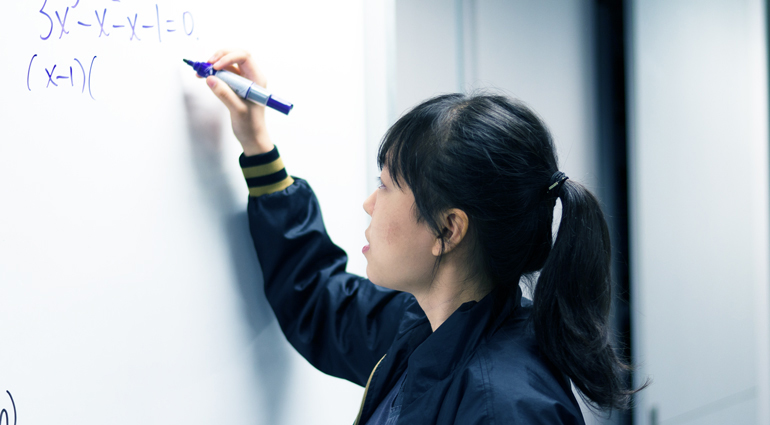 3x³-x²-x-1=0.
(x-1)(